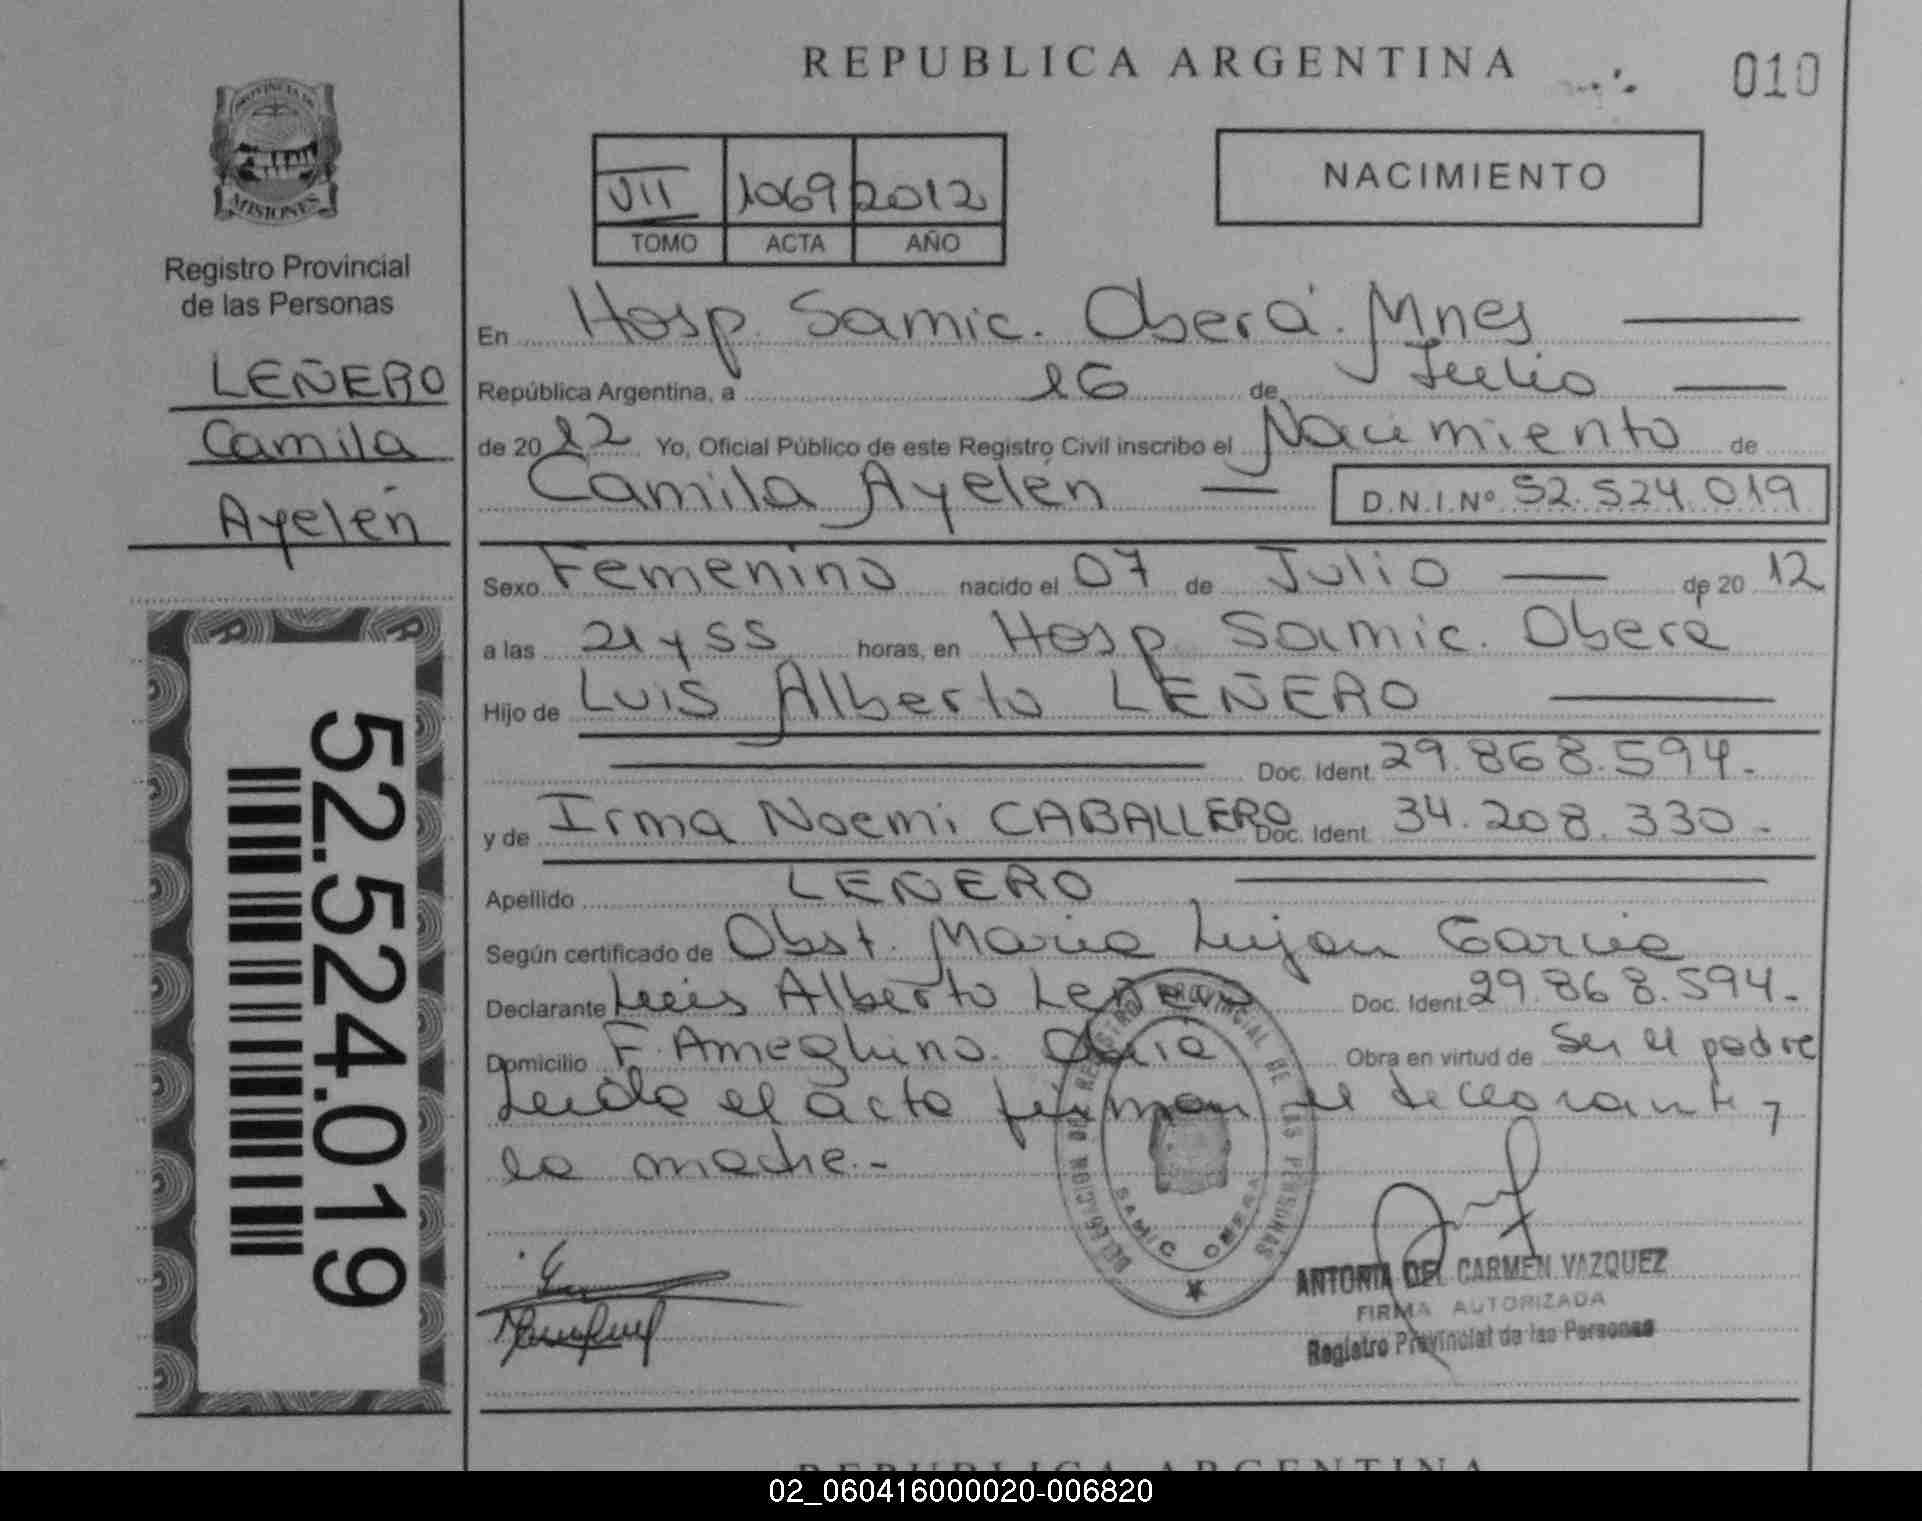 REPUBLICA ARGENTINA
010
PROVINCIA DE
MISIONES
Registro Provincial
de las Personas
LEÑERO
Camila
Ayelén
52.524.019
VII 1069 2012
TOMO ACTA AÑO
NACIMIENTO
En Hosp. Samic. Oberá. Mnes
República Argentina, a 16 de Julio
de 20 12 Yo, Oficial Público de este Registro Civil inscribo el Nacimiento de
Camila Ayelén D.N.I.Nº 52.524.019
Sexo Femenino nacido el 07 de Julio de 20 12
a las 21 y 55 horas, en Hosp. Samic. Oberá
Hijo de Luis Alberto LEÑERO
Doc. Ident. 29.868.594.-
y de Irma Noemi CABALLERO Doc. Ident. 34.208.330.-
Apellido LEÑERO
Según certificado de Obst. Maria Lujan Garcia
Declarante Luis Alberto Leñero Doc. Ident. 29.868.594.-
Domicilio F. Ameghino. Obra en virtud de Ser el padre
Leida el acta firman el declarante y
la madre.-
DELEGACION DE REGISTRO PROVINCIAL DE LAS PERSONAS
SAMIC OBERA
ANTONIA DEL CARMEN VAZQUEZ
FIRMA AUTORIZADA
Registro Provincial de las Personas
REPUBLICA ARGENTINA
02_060416000020-006820